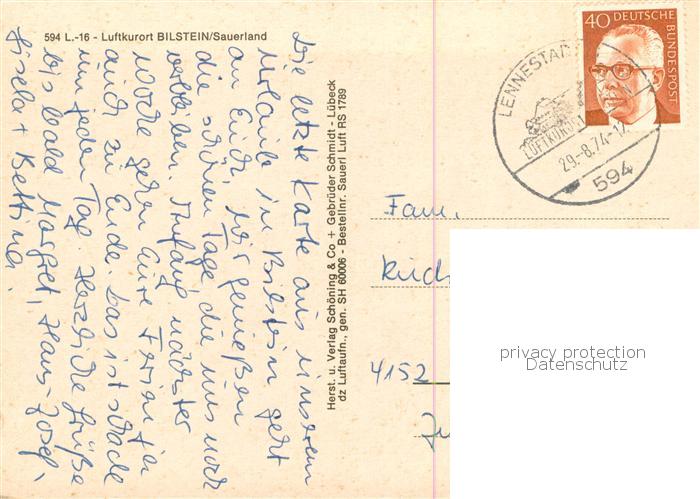 594 L.-16 - Luftkurort BILSTEIN/Sauerland
Die letzte Karte aus unserem
Urlaub in Bilstein geht
an Euch. Wir genießen
die schönen Tage, die uns noch
verbleiben. Anfang nächster
Woche gehen Eure Ferien ja
auch zu Ende. Das ist schade
um jeden Tag. Herzliche Grüße
bis bald Margret, Hans-Josef,
Gisela + Bettina.
Herst. u. Verlag Schöning & Co + Gebrüder Schmidt - Lübeck
dz Luftaufn., gen. SH 60006 - Bestellnr. Sauerl Luft RS 1789
40 DEUTSCHE BUNDESPOST
LENNESTADT
LUFTKURORT
29.-8.74-12
594
Fam.
4152
privacy protection
Datenschutz